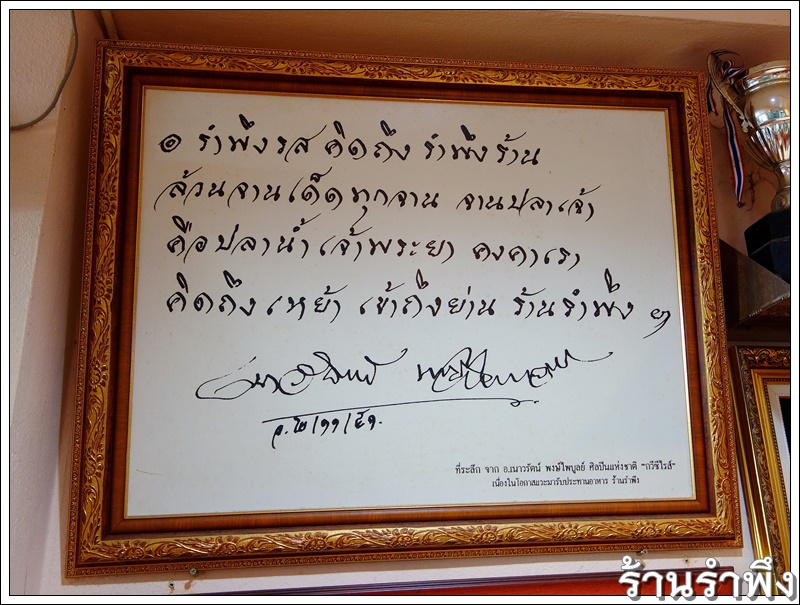 ๏ รำพึงรส คิดถึง รำพึงร้าน
ล้วนจานเด็ดทุกจาน จานปลาเจ้า
คือปลาน้ำเจ้าพระยา คงคาเรา
คิดถึง เหย้า เข้าถึงย่าน ร้านรำพึง ฯ
เนาวรัตน์ พงษ์ไพบูลย์
อ. ๒/๑๑/๕๑.
ที่ระลึก จาก อ.เนาวรัตน์ พงษ์ไพบูลย์ ศิลปินแห่งชาติ "กวีซีไรส์"
เนื่องในโอกาสแวะมารับประทานอาหาร ร้านรำพึง
ร้านรำพึง